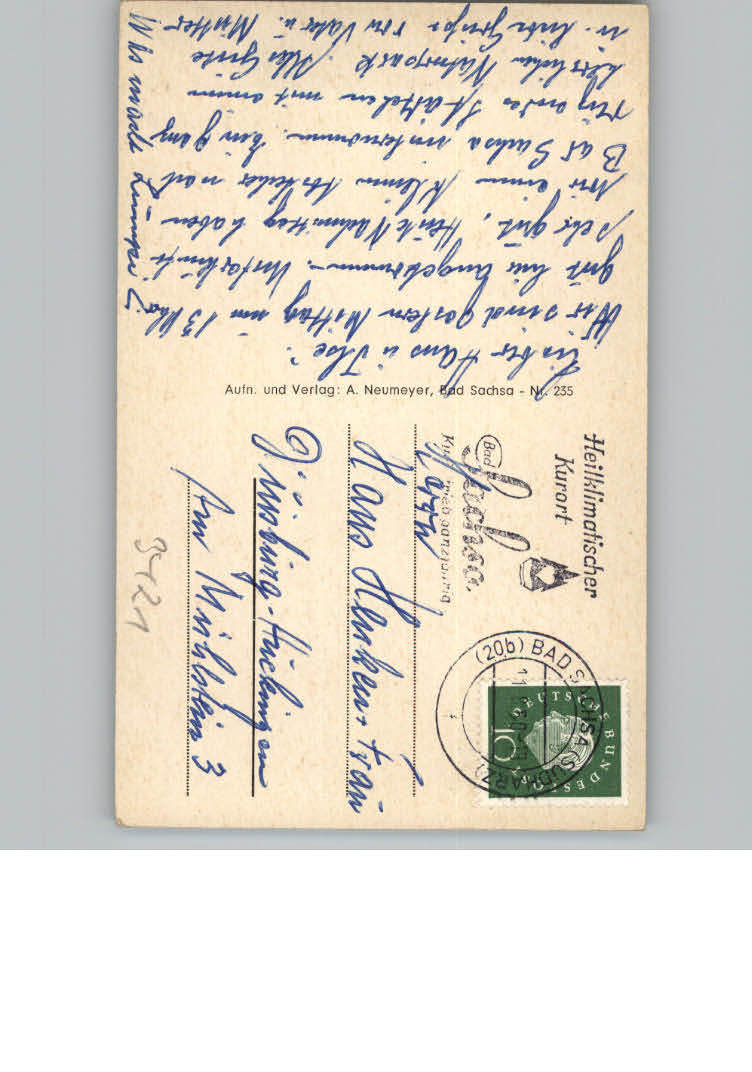 Lieber Hans u. Ilse!
Wir sind gestern Mittag um 13 Uhr
gut hier angekommen. Unterkunft
sehr gut. Heute Nachmittag haben
wir einen kleinen nach
Bad Sachsa unternommen. Ein ganz
Städtchen mit einem
herrlichen Naturpark. Alles Gute
u. Grüße von Vater u. Mutter
Was macht
Aufn. und Verlag: A. Neumeyer, Bad Sachsa - Nr. 235
Heilklimatischer
Kurort
Bad
Sachsa
Kurbetrieb ganzjährig
(20b) BAD SACHSA (SÜDHARZ)
DEUTSCHE BUNDESPOST
10
Herrn
Hans u. Frau
Duisburg-Hückingen
Am Mühlstein 3
3421